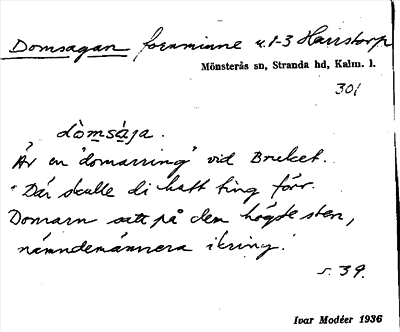 Domsagan fornminne u. 1-3 Harrstorp
Mönsterås sn, Stranda hd, Kalm. l.
301
dòmsàga.
Är en "domarring" vid Bruket.
"Där skulle di haft ting förr.
Domarn satt på den högste sten,
nämndemännera ikring."
s. 39.
Ivar Modéer 1936